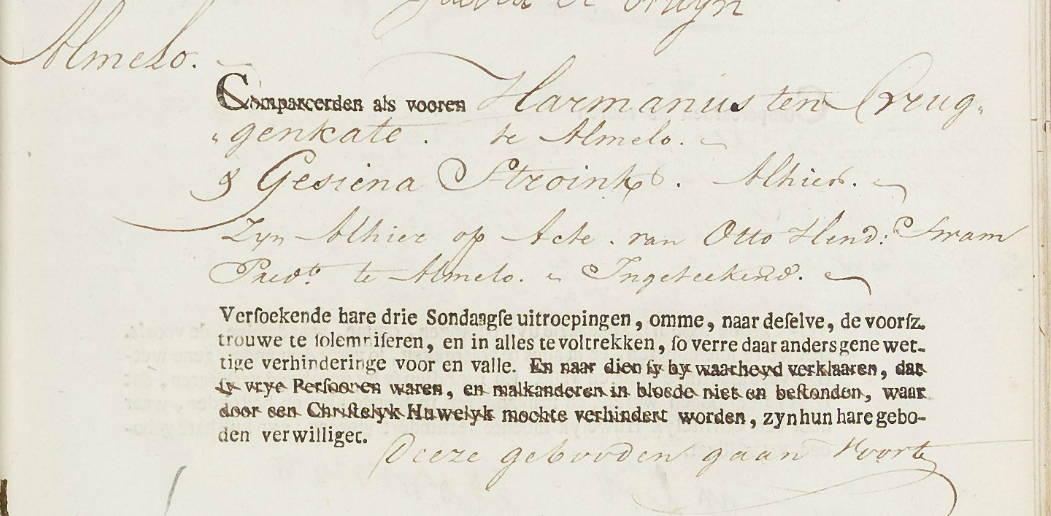 Almelo.
Compareerden als vooren Harmanius ten Brug„
„genkate. te Almelo.
& Gesiena Stroink. Alhier.
Zyn Alhier op Acte. van Otto Hend: Swam
Pred.t te Almelo. Ingeteekend.
Versoekende hare drie Sondaagse uitroepingen, omme, naar deselve, de voorsz.
trouwe te solemniseren, en in alles te voltrekken, so verre daar anders gene wet-
tige verhinderinge voor en valle. En naar dien sy by waarheyd verklaaren, dat
sy vrye Persoonen waren, en malkanderen in bloede niet en bestonden, waar
door een Christelyk Huwelyk mochte verhindert worden, zyn hun hare gebo-
den verwilliget.
Deeze gebooden gaan Voort